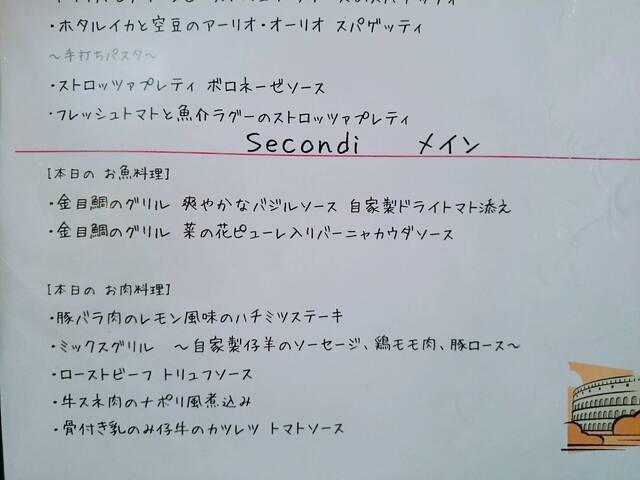 ・ホタルイカと空豆のアーリオ・オーリオ スパゲッティ
～手打ちパスタ～
・ストロッツァプレティ ボロネーゼソース
・フレッシュトマトと魚介ラグーのストロッツァプレティ
Secondi メイン
[本日の お魚料理]
・金目鯛のグリル 爽やかなバジルソース 自家製ドライトマト添え
・金目鯛のグリル 菜の花ピューレ入りバーニャカウダソース
[本日の お肉料理]
・豚バラ肉のレモン風味のハチミツステーキ
・ミックスグリル ～自家製仔羊のソーセージ、鶏モモ肉、豚ロース～
・ローストビーフ トリュフソース
・牛スネ肉のナポリ風煮込み
・骨付き乳のみ仔牛のカツレツ トマトソース